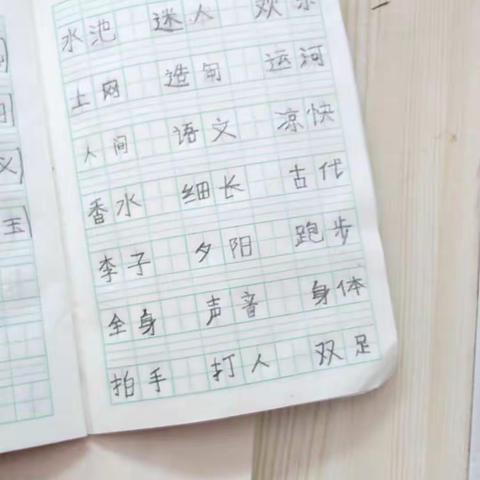 水池 迷人 欢乐
上网 造句 运河
人间 语文 凉快
香水 细长 古代
李子 夕阳 跑步
全身 声音 身体
拍手 打人 双足
玉